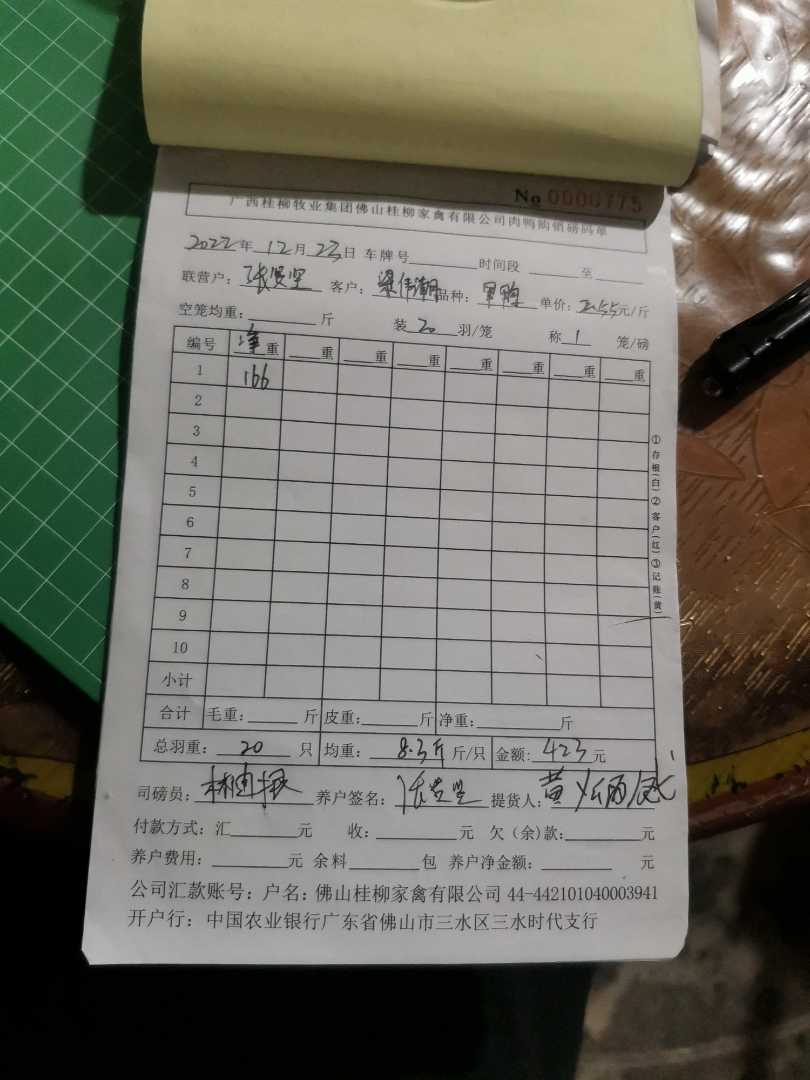 No 0000775
广西桂柳牧业集团佛山桂柳家禽有限公司肉鸭购销磅码单
2022年 12月 23日 车牌号 时间段 至
联营户: 张贤坚 客户: 梁伟潮 品种: 单价: 2.55元/斤
空笼均重: 斤 装 20 羽/笼 称 1 笼/磅
编号 净重 重 重 重 重 重 重 重
1 166
2
3
4
5
6
7
8
9
10
小计
合计 毛重: 斤 皮重: 斤 净重: 斤
总羽重: 20 只 均重: 8.3斤 斤/只 金额: 423 元
司磅员: 养户签名: 张贤坚 提货人: 黄
付款方式: 汇 元 收: 元 欠(余)款: 元
养户费用: 元 余料 包 养户净金额: 元
公司汇款账号: 户名: 佛山桂柳家禽有限公司 44-442101040003941
开户行: 中国农业银行广东省佛山市三水区三水时代支行
①存根(白)②客户(红)③记账(黄)